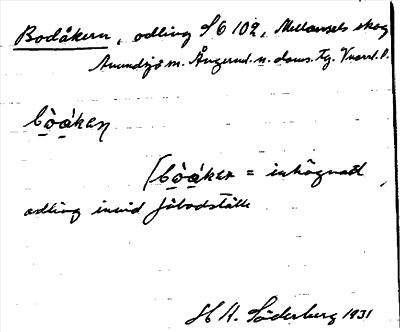 Bodåkern, odling S 6 102, Mellansels skog
Anundsjö sn. Ångerml. n. doms. tg. Vnorrl. l.
bòåken
[bòåken = inhägnad
odling invid fäbodställe
H H. Söderberg 1931